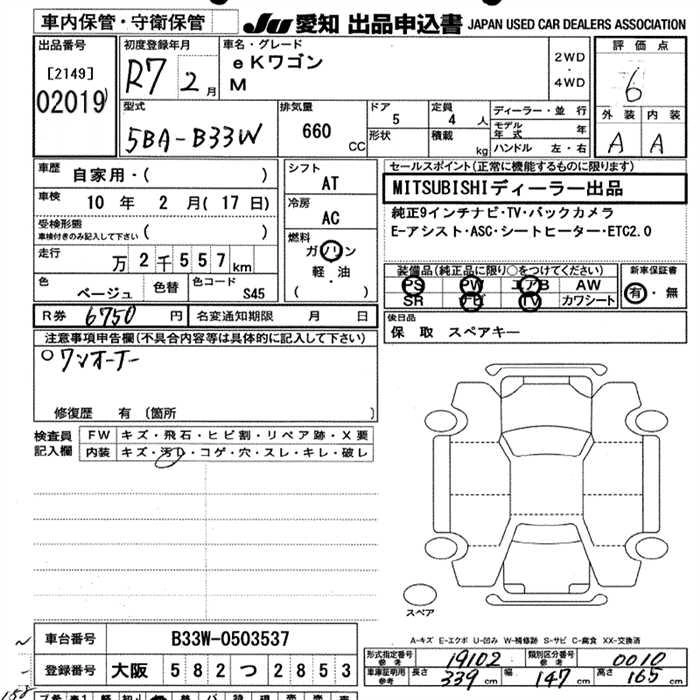 車内保管・守衛保管
JU 愛知 出品申込書 JAPAN USED CAR DEALERS ASSOCIATION
出品番号
[2149]
02019
初度登録年月
R7 2月
車名・グレード
eKワゴン
M
2WD
・
4WD
評価点
6
外装 内装
A A
型式
5BA-B33W
排気量
660 CC
ドア
5
形状
定員
4 人
積載
kg
ディーラー・並行
モデル年式 年
ハンドル 左・右
車歴
自家用・( )
車検
10 年 2 月(17日)
受検形態
車検付きのみ記入して下さい ( )
走行
万2千557km
色
ベージュ
色替
色コード
S45
シフト
AT
冷房
AC
燃料
ガソリン
軽・油
( )
セールスポイント(正常に機能するものに限ります)
MITSUBISHIディーラー出品
純正9インチナビ・TV・バックカメラ
E-アシスト・ASC・シートヒーター・ETC2.0
装備品(純正品に限り○をつけてください)
PS PW エアB AW
SR ナビ TV カワシート
新車保証書
有・無
R券 6750 円 名変通知期限 月 日
後日品
保 取 スペアキー
注意事項申告欄(不具合内容等は具体的に記入して下さい)
○ワンオーナー
修復歴 有 (箇所 )
検査員
記入欄
FW キズ・飛石・ヒビ割・リペア跡・X要
内装 キズ・汚レ・コゲ・穴・スレ・キレ・破レ
スペア
A-キズ E-エクボ U-凹み W-補修跡 S-サビ C-腐食 XX-交換済
車台番号 B33W-0503537
登録番号 大阪 582 つ 2853
形式指定番号
参考
19102
類別区分番号
参考
0010
車庫証明用
参考
長さ 339 cm 幅 147 cm 高さ 165 cm